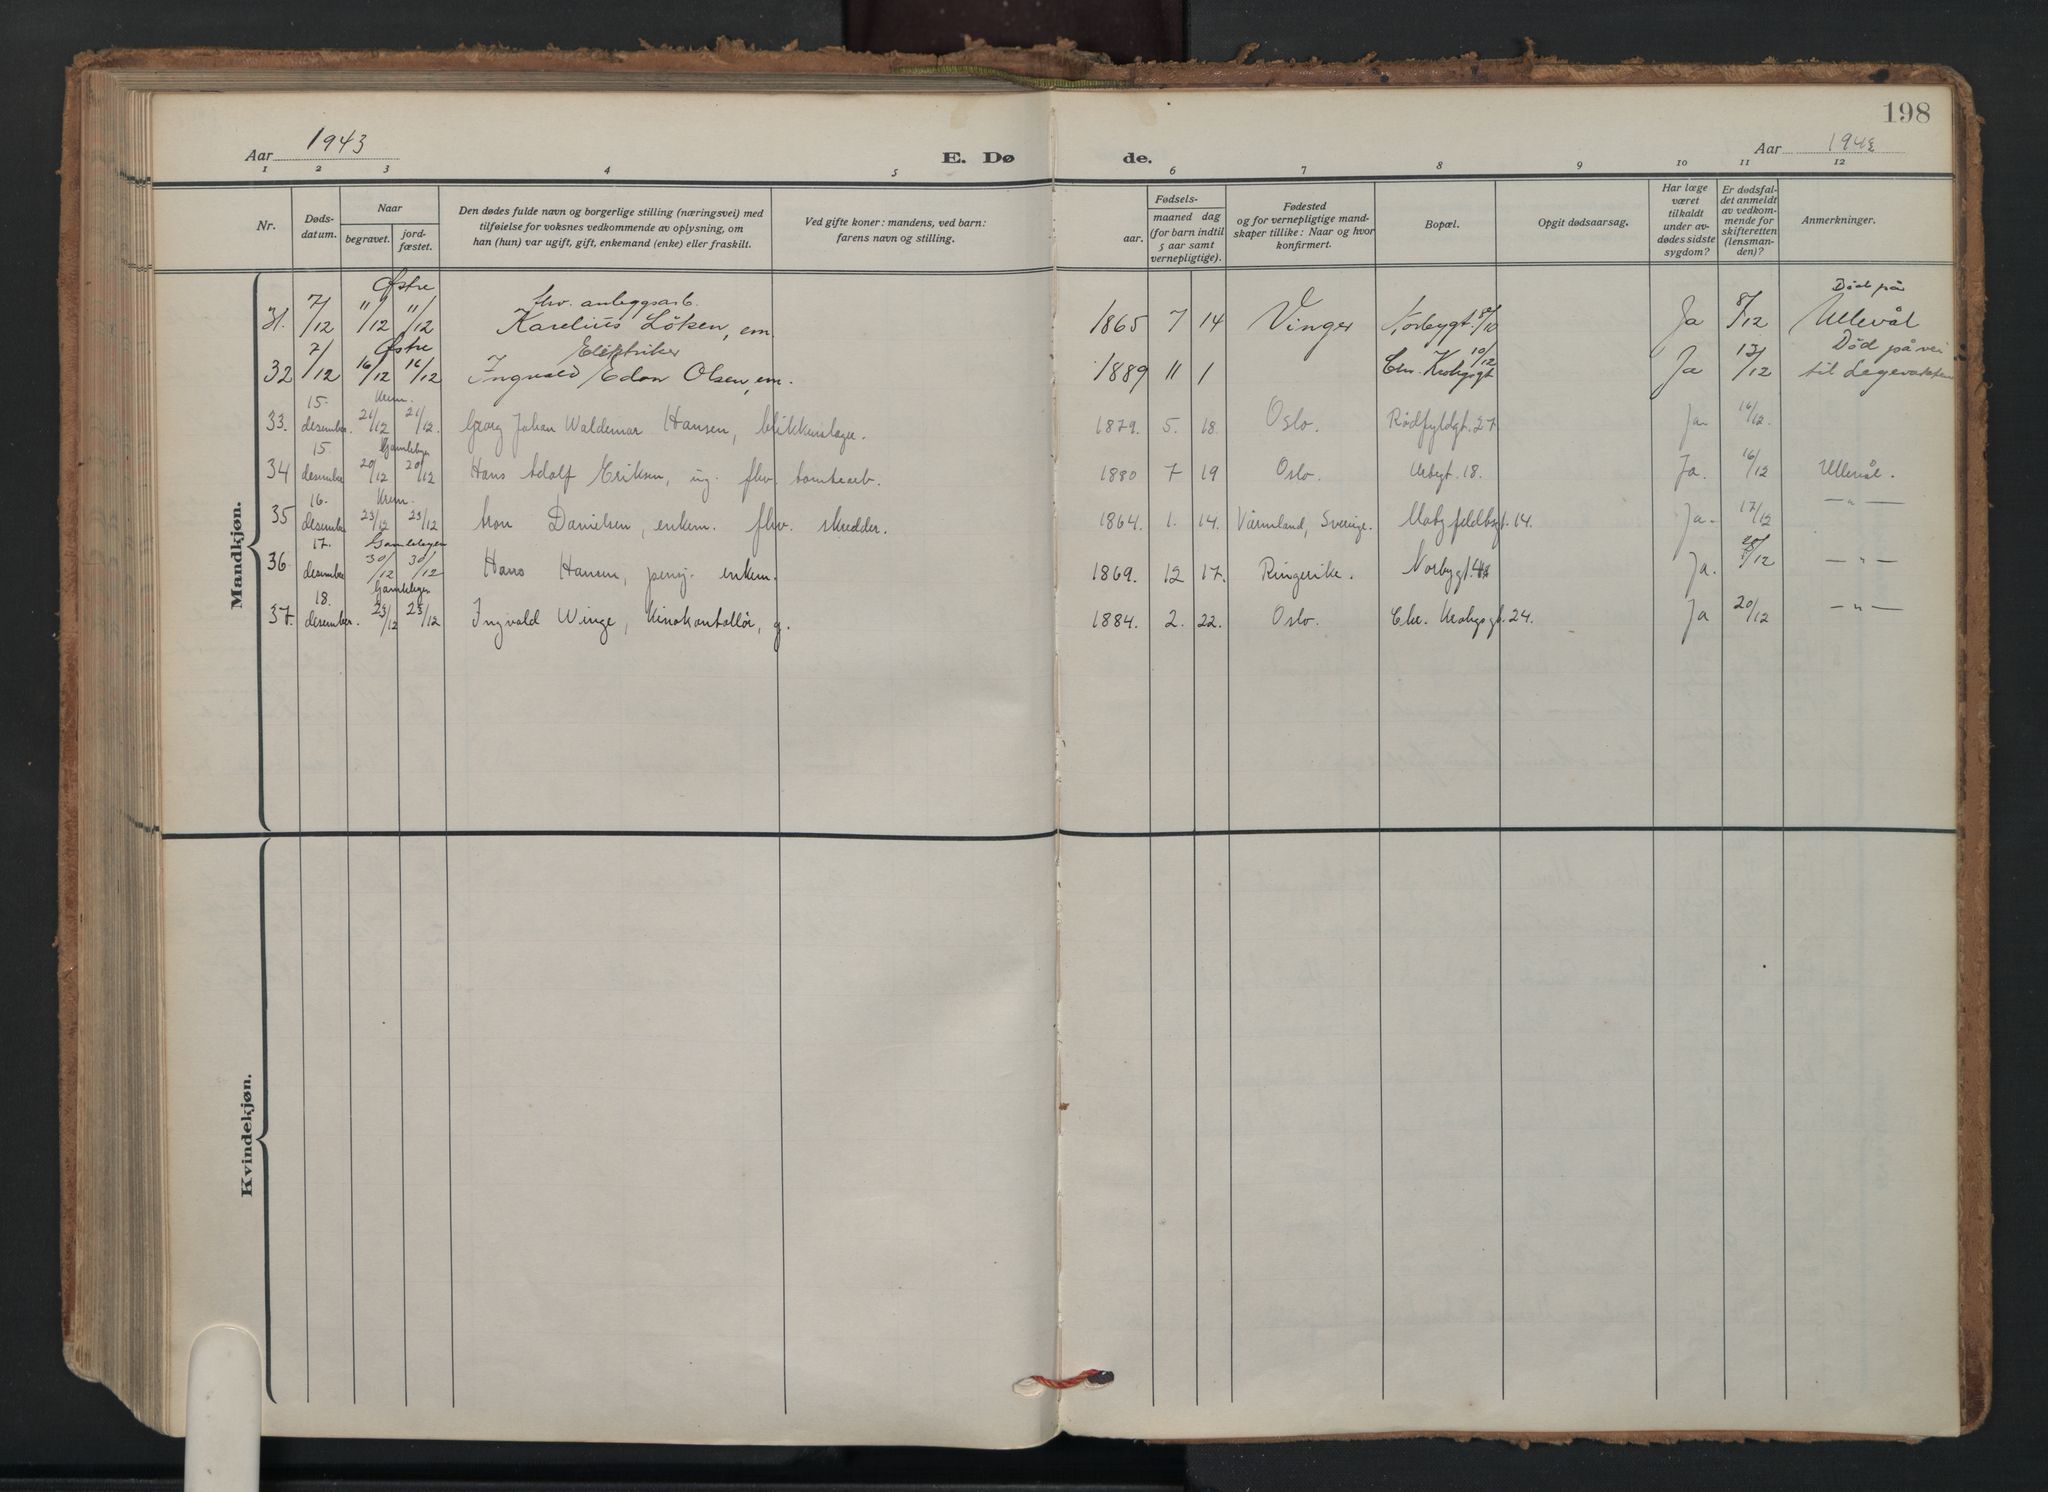 198
Aar 1943
E. Dø de.
Aar 1943
1 2 3 4 5 6 7 8 9 10 11 12
Nr.
Døds-
datum.
Naar
begravet.
jord-
fæstet.
Den dødes fulde navn og borgerlige stilling (næringsvei) med
tilføielse for voksnes vedkommende av oplysning, om
han (hun) var ugift, gift, enkemand (enke) eller fraskilt.
Ved gifte koner: mandens, ved barn:
farens navn og stilling.
Fødsels-
aar.
maaned dag
(for barn indtil
5 aar samt
vernepligtige).
Fødested
og for vernepligtige mand-
skaper tillike: Naar og hvor
konfirmert.
Bopæl.
Opgit dødsaarsag.
Har læge
været
tilkaldt
under av-
dødes sidste
sygdom?
Er dødsfal-
det anmeldt
av vedkom-
mende for
skifteretten
(lensman-
den)?
Anmerkninger.
Mandkjøn.
Østre flrv. anleggsarb. Død på
31. 7/12 11/12 11/12 Karelius Löken, em. 1865 7 14 Vinger Norbygt. Ja 8/12 Ullevål
Østre Elektriker Død på vei
32 7/12 16/12 16/12 Ingvald Olsen, em. 1889 11 1 Chr. Krohgsgt Ja 13/12 til Legevakten
15. Krem.
33. desember. 21/12 21/12. Georg Johan Waldemar Hansen, blikkenslager. 1879. 5. 18. Oslo. Rødfyldgt. 27 Ja 16/12.
15. Gamlebyen
34 desember 20/12 20/12 Hans Adolf Eriksen, ug. flrv. tomtearb. 1880 7 19 Oslo. Urbygt. 18. Ja. 16/12 Ullevål.
16. Krem.
35 desember 23/12 23/12 Aron Danielsen, enkem. flrv. skredder. 1864. 1. 14. Värmland, Sverige. 14. Ja. 17/12 — " —
17. Gamlebyen
36 desember 30/12 30/12 Hans Hansen, pensj. enkem. 1869. 12 17. Ringerike. Norbygt. Ja. 20/12 — " —
18. Gamlebyen
37. desember. 23/12 23/12 Ingvald Winge, Kinokontrollør, g. 1884. 2. 22. Oslo. Chr. Krohgsgt. 24. Ja 20/12 — " —
Kvindekjøn.